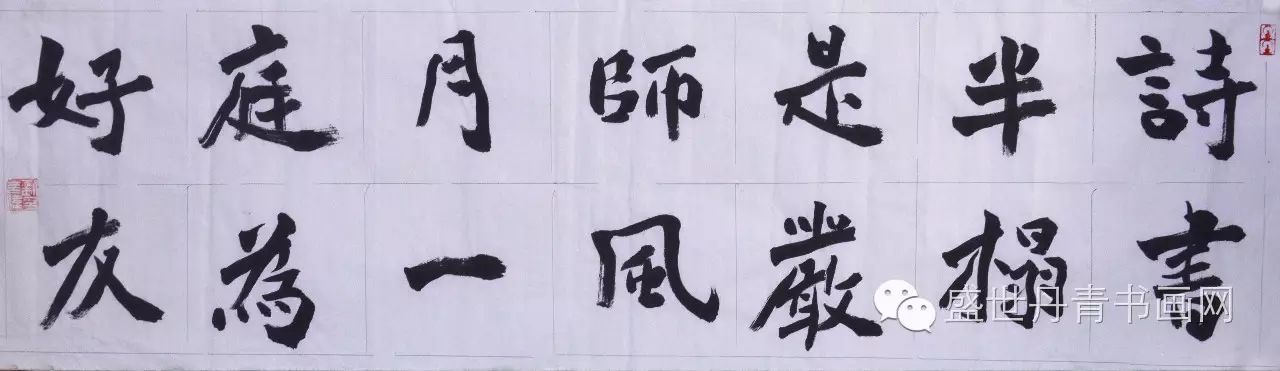 詩書
半榻
是嚴
師風
月一
庭為
好友
盛世丹青书画网